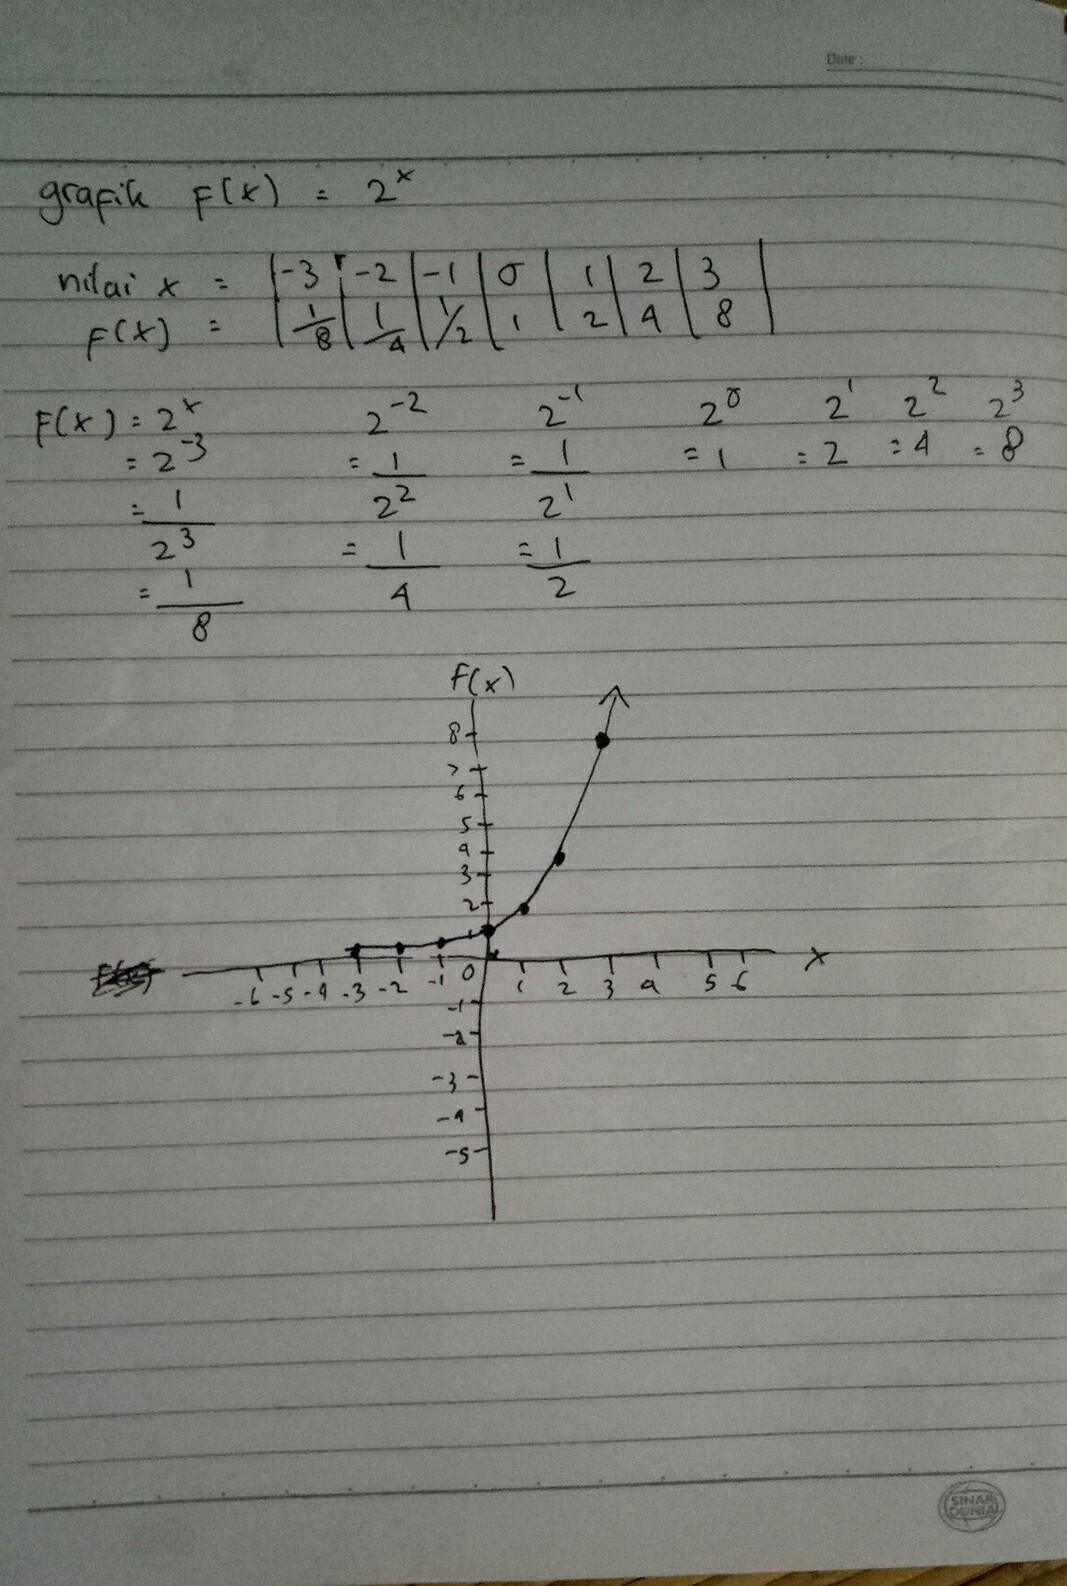 Date :
grafik F(x) = 2^x
nilai x = | -3 | -2 | -1 | 0 | 1 | 2 | 3 |
F(x) = | 1/8 | 1/4 | 1/2 | 1 | 2 | 4 | 8 |
F(x) = 2^x 2^-2 2^-1 2^0 2^1 2^2 2^3
= 2^-3 = 1/2^2 = 1/2^1 = 1 = 2 = 4 = 8
= 1/2^3 = 1/4 = 1/2
= 1/8
F(x)
8
7
6
5
4
3
2
1
x
-6 -5 -4 -3 -2 -1 0 1 2 3 4 5 6
-1
-2
-3
-4
-5
SINAR
DUNIA